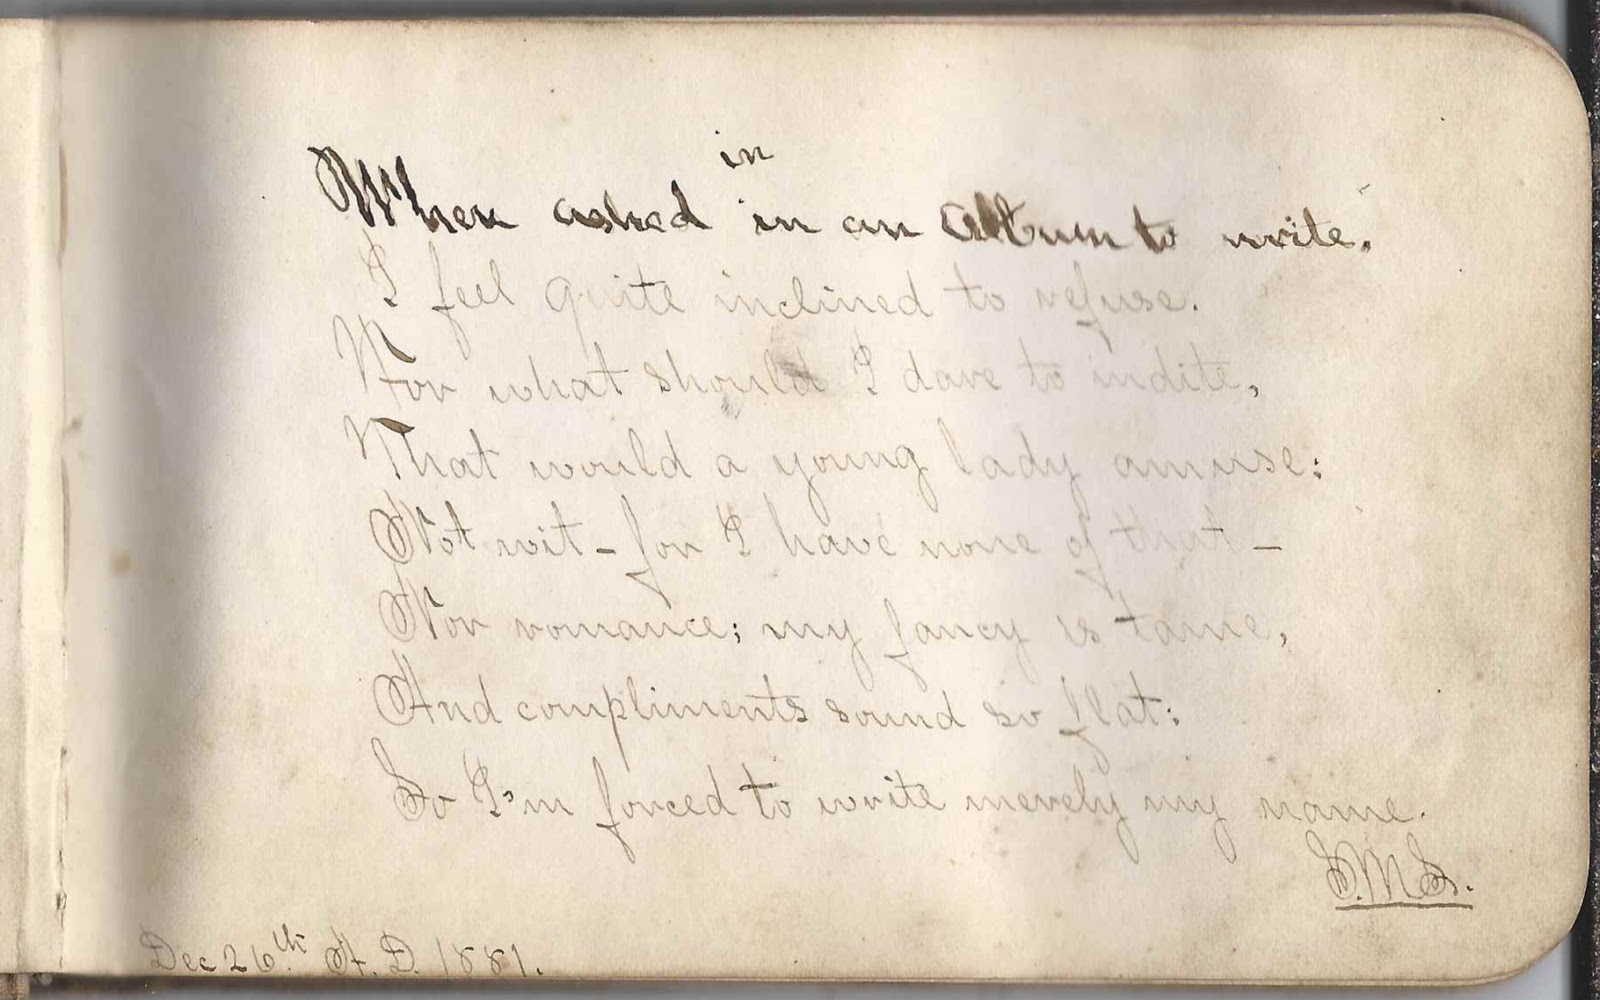 in
When asked in an Album to write.
I feel quite inclined to refuse.
For what should I dare to indite,
That would a young lady amuse:
Not wit – for I have none of that –
Nor romance; my fancy is tame,
And compliments sound so flat:
So I'm forced to write merely my name.
S.M.S.
Dec 26th A. D. 1881.